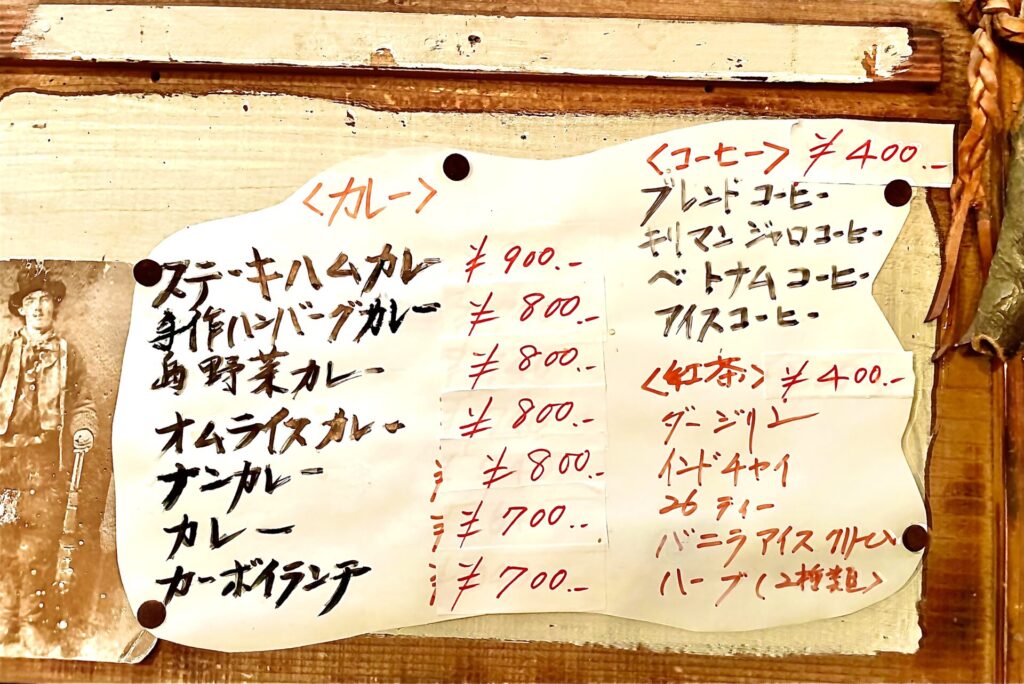 <カレー>
ステーキハムカレー ¥900.-
手作ハンバーグカレー ¥800.-
野菜カレー ¥800.-
オムライスカレー ¥800.-
ナンカレー ¥800.-
カレー ¥700.-
カーボイランチ ¥700.-
<コーヒー> ¥400.-
ブレンドコーヒー
キリマンジャロコーヒー
ベトナムコーヒー
アイスコーヒー
<紅茶> ¥400.-
ダージリン
インドチャイ
26ティー
バニラアイス
ハーブ(2種類)